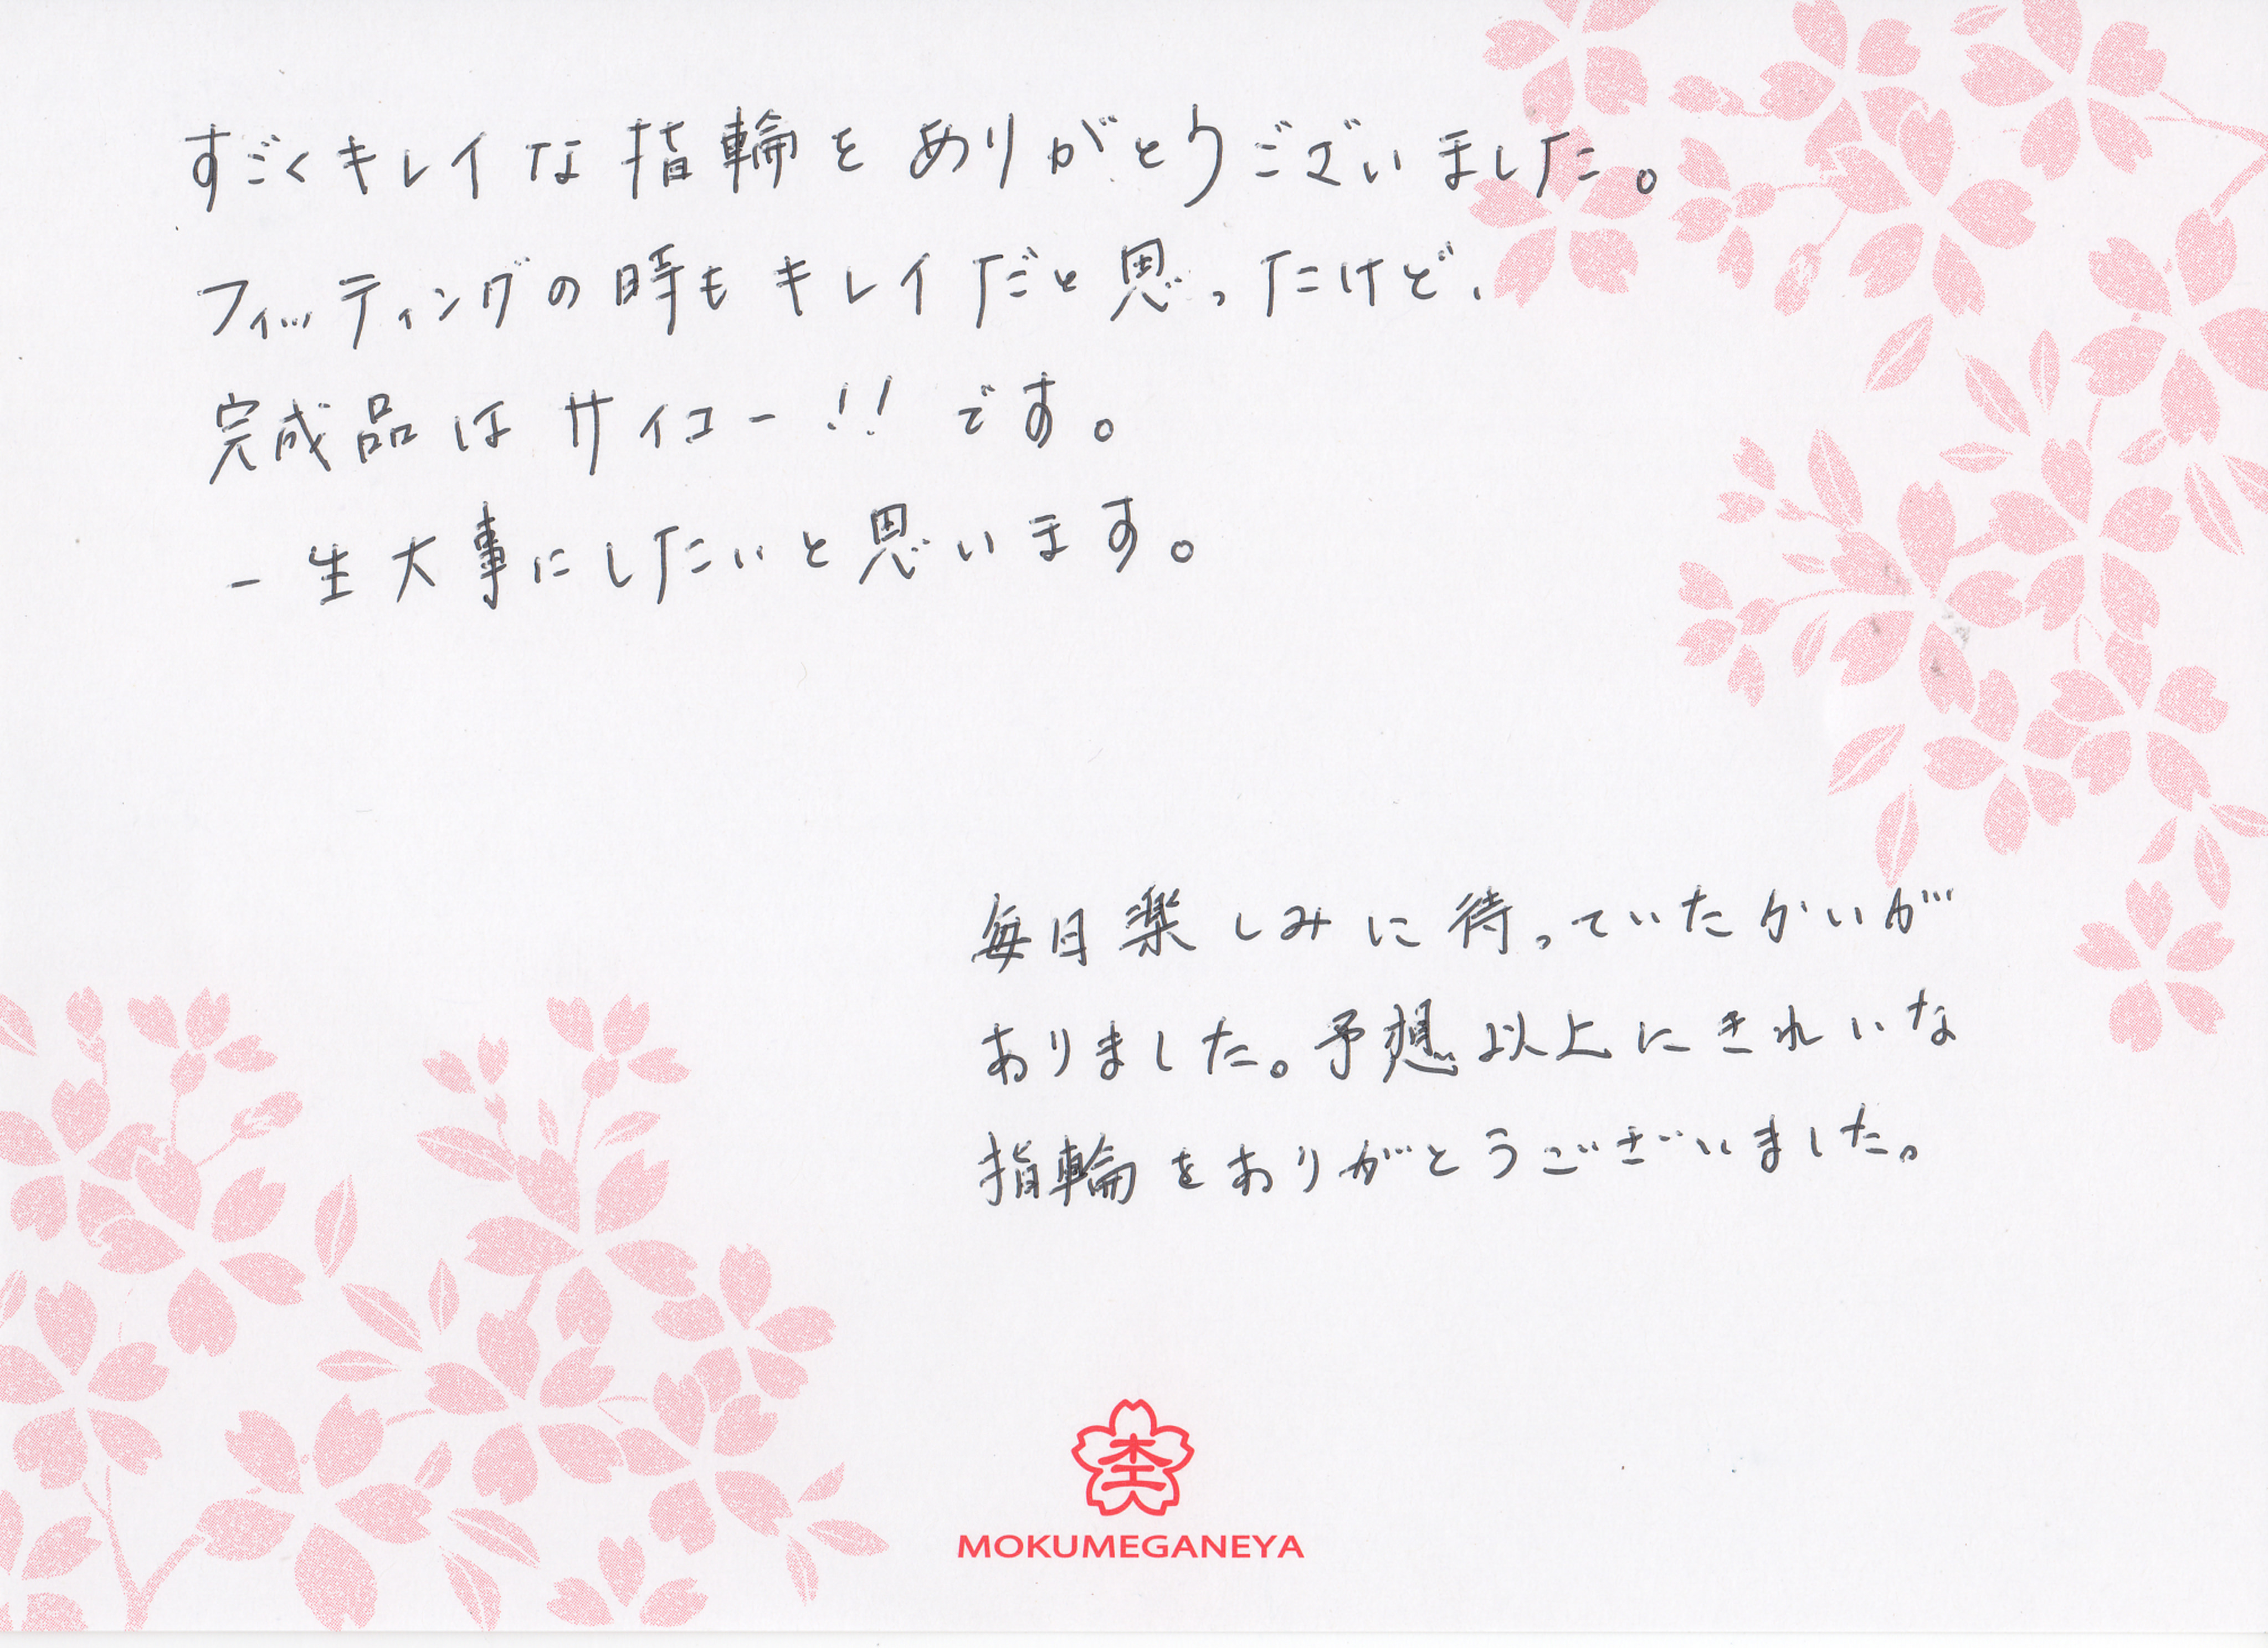 すごくキレイな指輪をありがとうございました。
フィッティングの時もキレイだと思ったけど、
完成品はサイコー!!です。
一生大事にしたいと思います。
毎日楽しみに待っていたかいが
ありました。予想以上にきれいな
指輪をありがとうございました。
杢
MOKUMEGANEYA